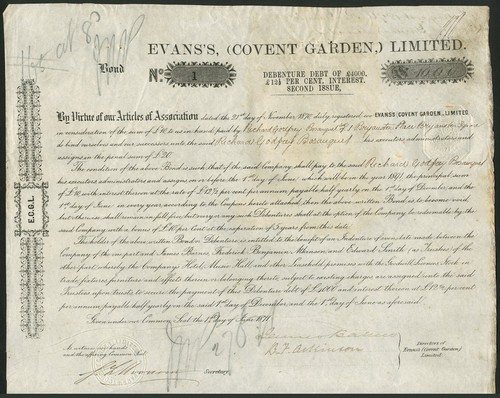 EVANS'S, (COVENT GARDEN,) LIMITED.
Bond
No. 1
DEBENTURE DEBT OF £4600,
£12½ PER CENT. INTEREST,
SECOND ISSUE,
By Virtue of our Articles of Association dated the 21st day of November, 1870, duly registered, we EVANS'S (COVENT GARDEN,) LIMITED,
in consideration of the sum of £10 to us in hand paid by Richard Godfrey Bosanquet of 1 Bryanston Place Bryanston Square
do bind ourselves and our successors unto the said Richard Godfrey Bosanquet his executors, administrators and
assigns in the penal sum of £20
The condition of the above Bond is such that if the said Company shall pay to the said Richard Godfrey Bosanquet
his executors, administrators and assigns on or before the 1st day of June which will be in the year 1891, the principal sum
of £10 with interest thereon at the rate of £12½ per cent. per annum, payable half yearly on the 1st day of December and the
1st day of June in every year, according to the Coupons hereto attached, then the above written Bond is to become void,
but otherwise shall remain in full force, but every or any such Debentures shall at the option of the Company be redeemable by the
said Company with a bonus of £10 per Cent at the expiration of 5 years from this date.
The holder of the above written Bond or Debenture is entitled to the benefit of an Indenture of even date made between the
Company of the one part and James Barnes, Frederick Benjamin and Edward Smith, (as Trustees) of the
other part, whereby the Company's Hotel, Music Hall, and other Leasehold premises with the Goodwill, Licenses, Stock in
trade, fixtures, furniture and effects therein or belonging thereto, subject to existing charges are assigned unto the said
Trustees upon Trusts to secure the payment of this Debenture Debt of £4600 and interest thereon at £12½ per cent
per annum, payable half yearly on the said 1st day of December, and the 1st day of June as aforesaid.
Given under our Common Seal the 1st day of June 1871.
As witness our hands
and the affixing Common Seal
Secretary.
B. F. Atkinson
Directors of
Evans's (Covent Garden,)
Limited.
E.C.G.L.